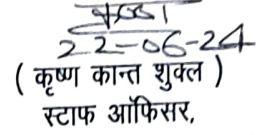 22-06-24
( कृष्ण कान्त शुक्ल )
स्टाफ ऑफिसर,